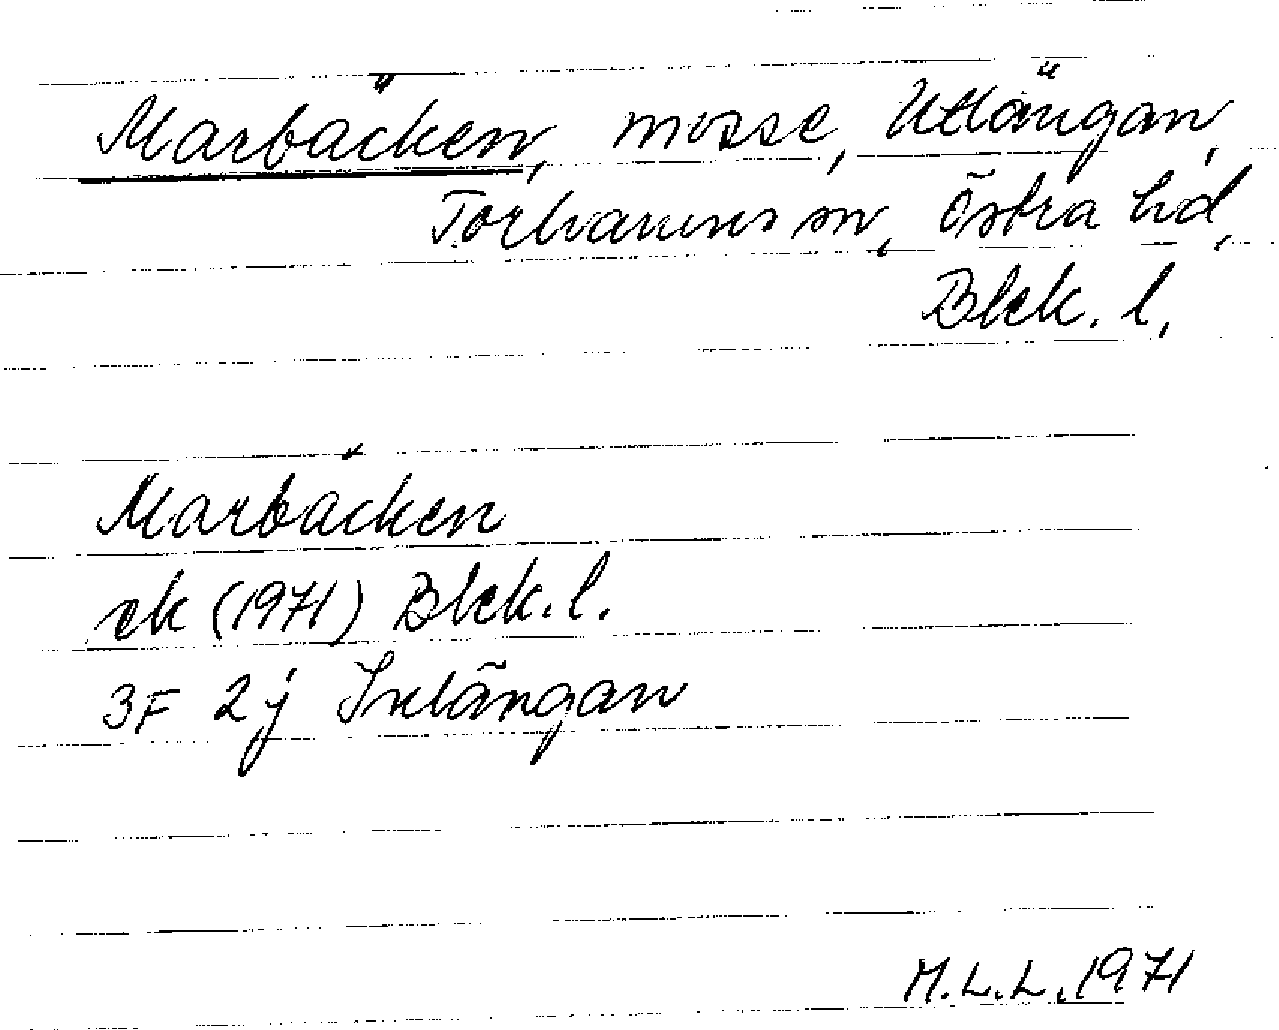 Marbäcken, mosse, Utlängan,
Torhamns sn, Östra hd,
Blek. l.
Marbäcken
ek (1971) Blek. l.
3F 2j Inlängan
M.L.L. 1971